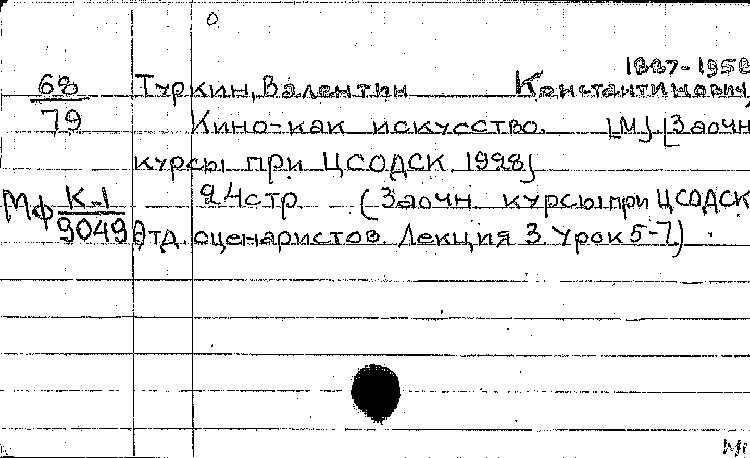 1887-1958
68 Туркин, Валентин Константинович
79 Кино-как искусство. [М]. [Заочн
курсы при ЦСОДСК. 1928]
24 стр (Заочн. курсы при ЦСОДСК
Мф К-1
9049 Отд. сценаристов. Лекция 3 Урок 5-7)